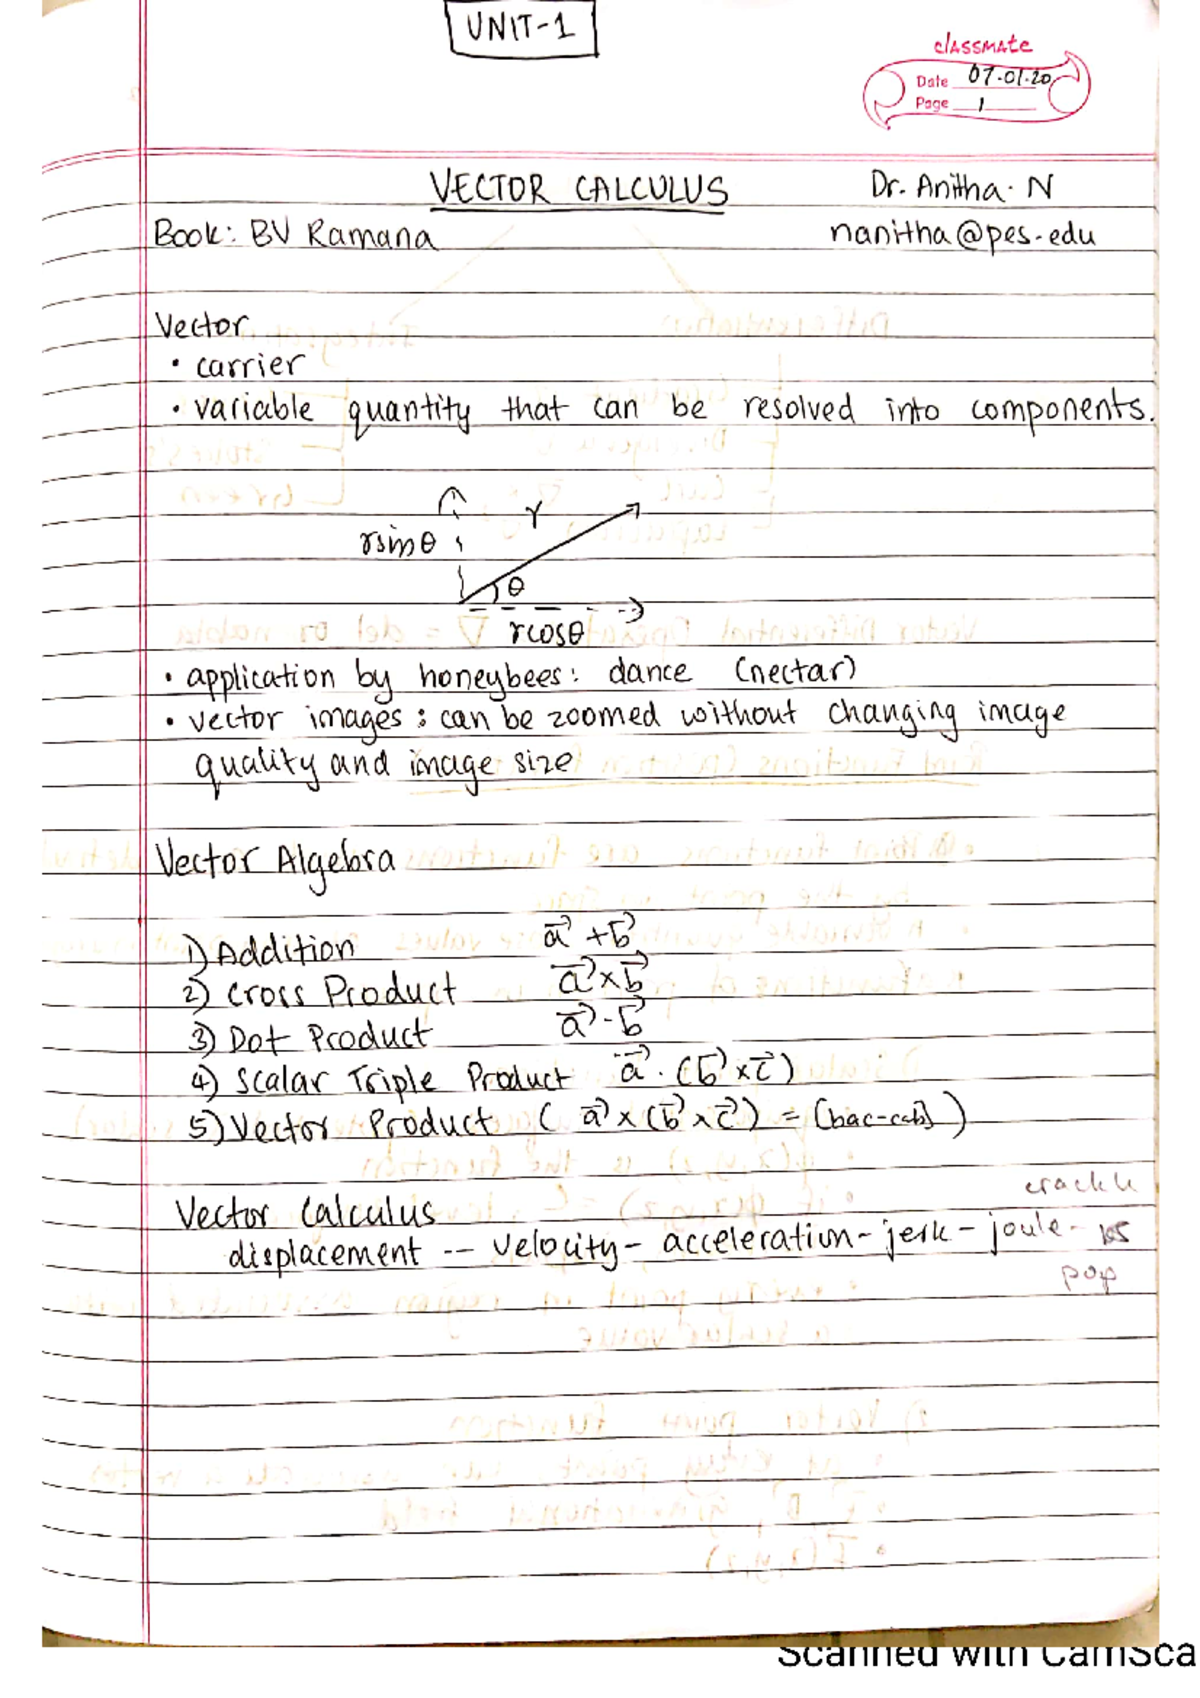 UNIT-1
classmate
Date 07.01.20
Page 1
VECTOR CALCULUS
Dr. Anitha. N
Book: BV Ramana
nanitha@pes.edu
Vector
• carrier
• variable quantity that can be resolved into components.
r
rsinθ
θ
rcosθ
• application by honeybees: dance (nectar)
• vector images: can be zoomed without changing image
quality and image size
Vector Algebra
1) Addition a⃗ + b⃗
2) Cross Product a⃗ × b⃗
3) Dot Product a⃗ · b⃗
4) Scalar Triple Product a⃗ · (b⃗ × c⃗)
5) Vector Product ( a⃗ × (b⃗ × c⃗) = [bac-cab] )
Vector Calculus
crackle
displacement -- velocity - acceleration - jerk - joule -
pop
Scanned with CamSca